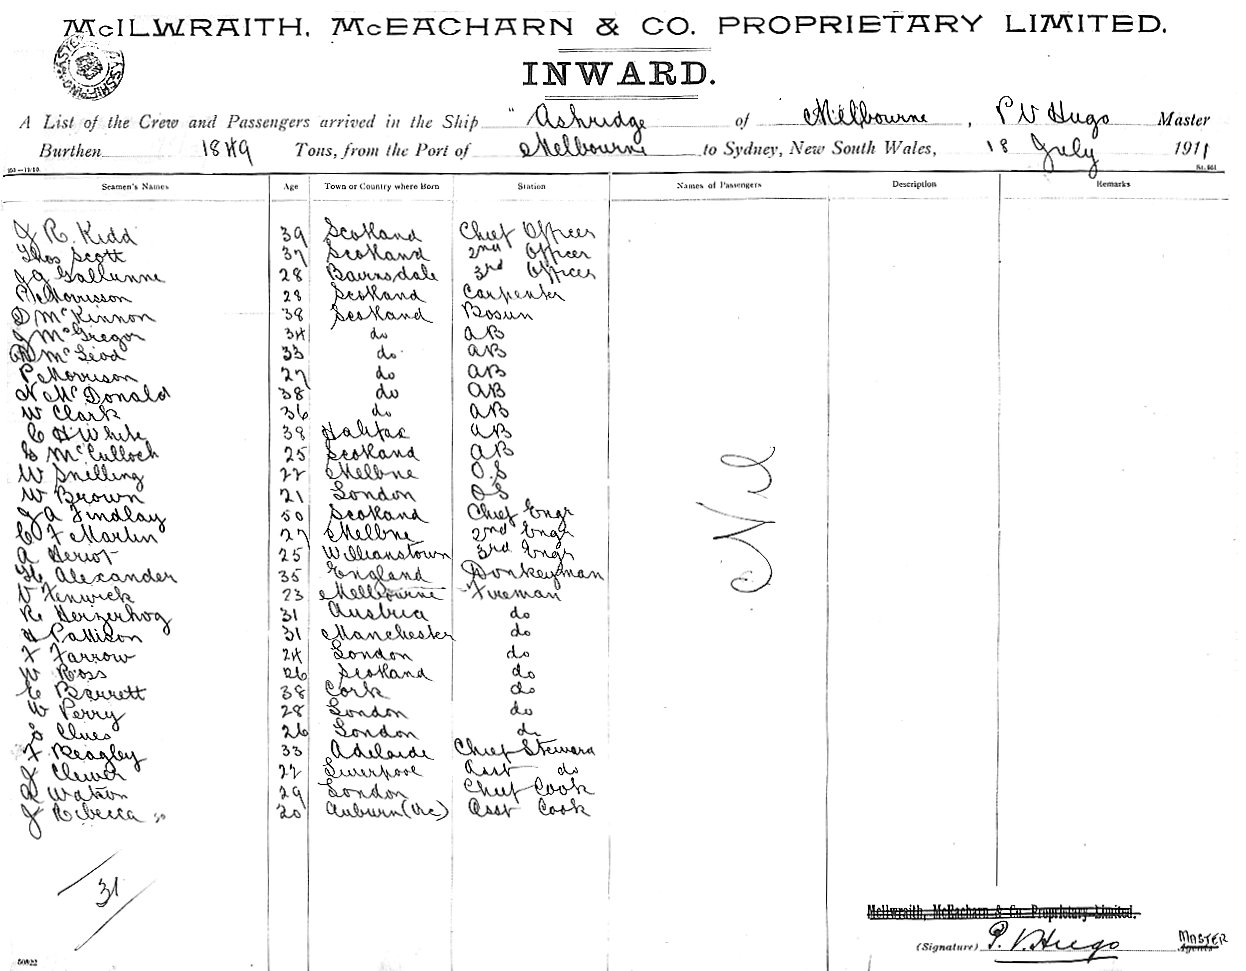 McILWRAITH, McEACHARN & CO. PROPRIETARY LIMITED.
INWARD.
A List of the Crew and Passengers arrived in the Ship "Ashridge of Melbourne, P V Hugo Master
Burthen 1849 Tons, from the Port of Melbourne to Sydney, New South Wales, 18 July 1911
Seamen's Names Age Town or Country where Born Station Names of Passengers Description Remarks
J R. Kidd 39 Scotland Chief Officer
Thos Scott 37 Scotland 2nd Officer
J G Gallunne 28 Bairnsdale 3rd Officer
Morrisson 28 Scotland Carpenter
D McKinnon 38 Scotland Bosun
J McGregor 34 do AB
McLeod 33 do AB
P Morrison 27 do AB
N McDonald 38 do AB
W Clark 36 do AB
C H White 38 Halifax AB
G McCulloch 25 Scotland AB
W Snilling 22 Melbne O.S
W Brown 21 London OS
J A Findlay 50 Scotland Chief Engr
C F Martin 27 Melbne 2nd Engr
A Heriot 25 Williamstown 3rd Engr
H Alexander 35 England Donkeyman
V Fenwick 23 Melbourne Fireman
R Herzerhog 31 Austria do
H Pattison 31 Manchester do
F Farrow 24 London do
W Ross 26 Scotland do
C Barrett 38 Cork do
W Perry 28 London do
Clues 26 London do
F Keagley 33 Adelaide Chief Steward
J Clewer 22 Liverpool Asst do
R Watson 29 London Chief Cook
J Ribecca 20 Auburn (Vic) Asst Cook
Nil
31
McIlwraith, McEacharn & Co. Proprietary Limited.
(Signature) P. V. Hugo MASTER
Agents
50822